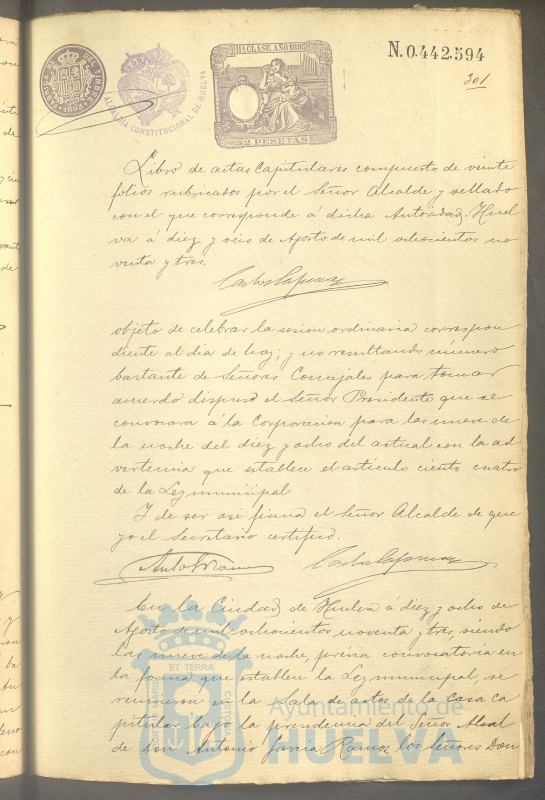 11ª CLASE. AÑO 1893
2 PESETAS
ALCALDIA CONSTITUCIONAL DE HUELVA
1893
N. 0.442.594
301
Libro de actas Capitulares compuesto de veinte
folios rubricados por el Señor Alcalde y sellado
con el que corresponde á dicha Autoridad. Huel
va á diez y seis de Agosto de mil ochocientos no
venta y tres.
objeto de celebrar la sesion ordinaria correspon
diente al dia de hoy; y no resultando número
bastante de Señores Concejales para tomar
acuerdo dispuso el Señor Presidente que se
convocara á la Corporacion para las nueve de
la noche del diez y ocho del actual con la ad
vertencia que establece el articulo ciento cuatro
de la Ley municipal
Y de ser asi firma el Señor Alcalde de que
yo el Secretario certifico.
En la Ciudad de Huelva á diez y ocho de
Agosto de mil ochocientos noventa y tres, siendo
las nueve de la noche, previa convocatoria en
la forma que establece la Ley municipal, se
reunieron en la Sala de actos de la Casa Ca
pitular bajo la presidencia del Señor Alcal
de Don Antonio Garcia Ramos los Señores Don
ET TERRA
Ayuntamiento de
HUELVA